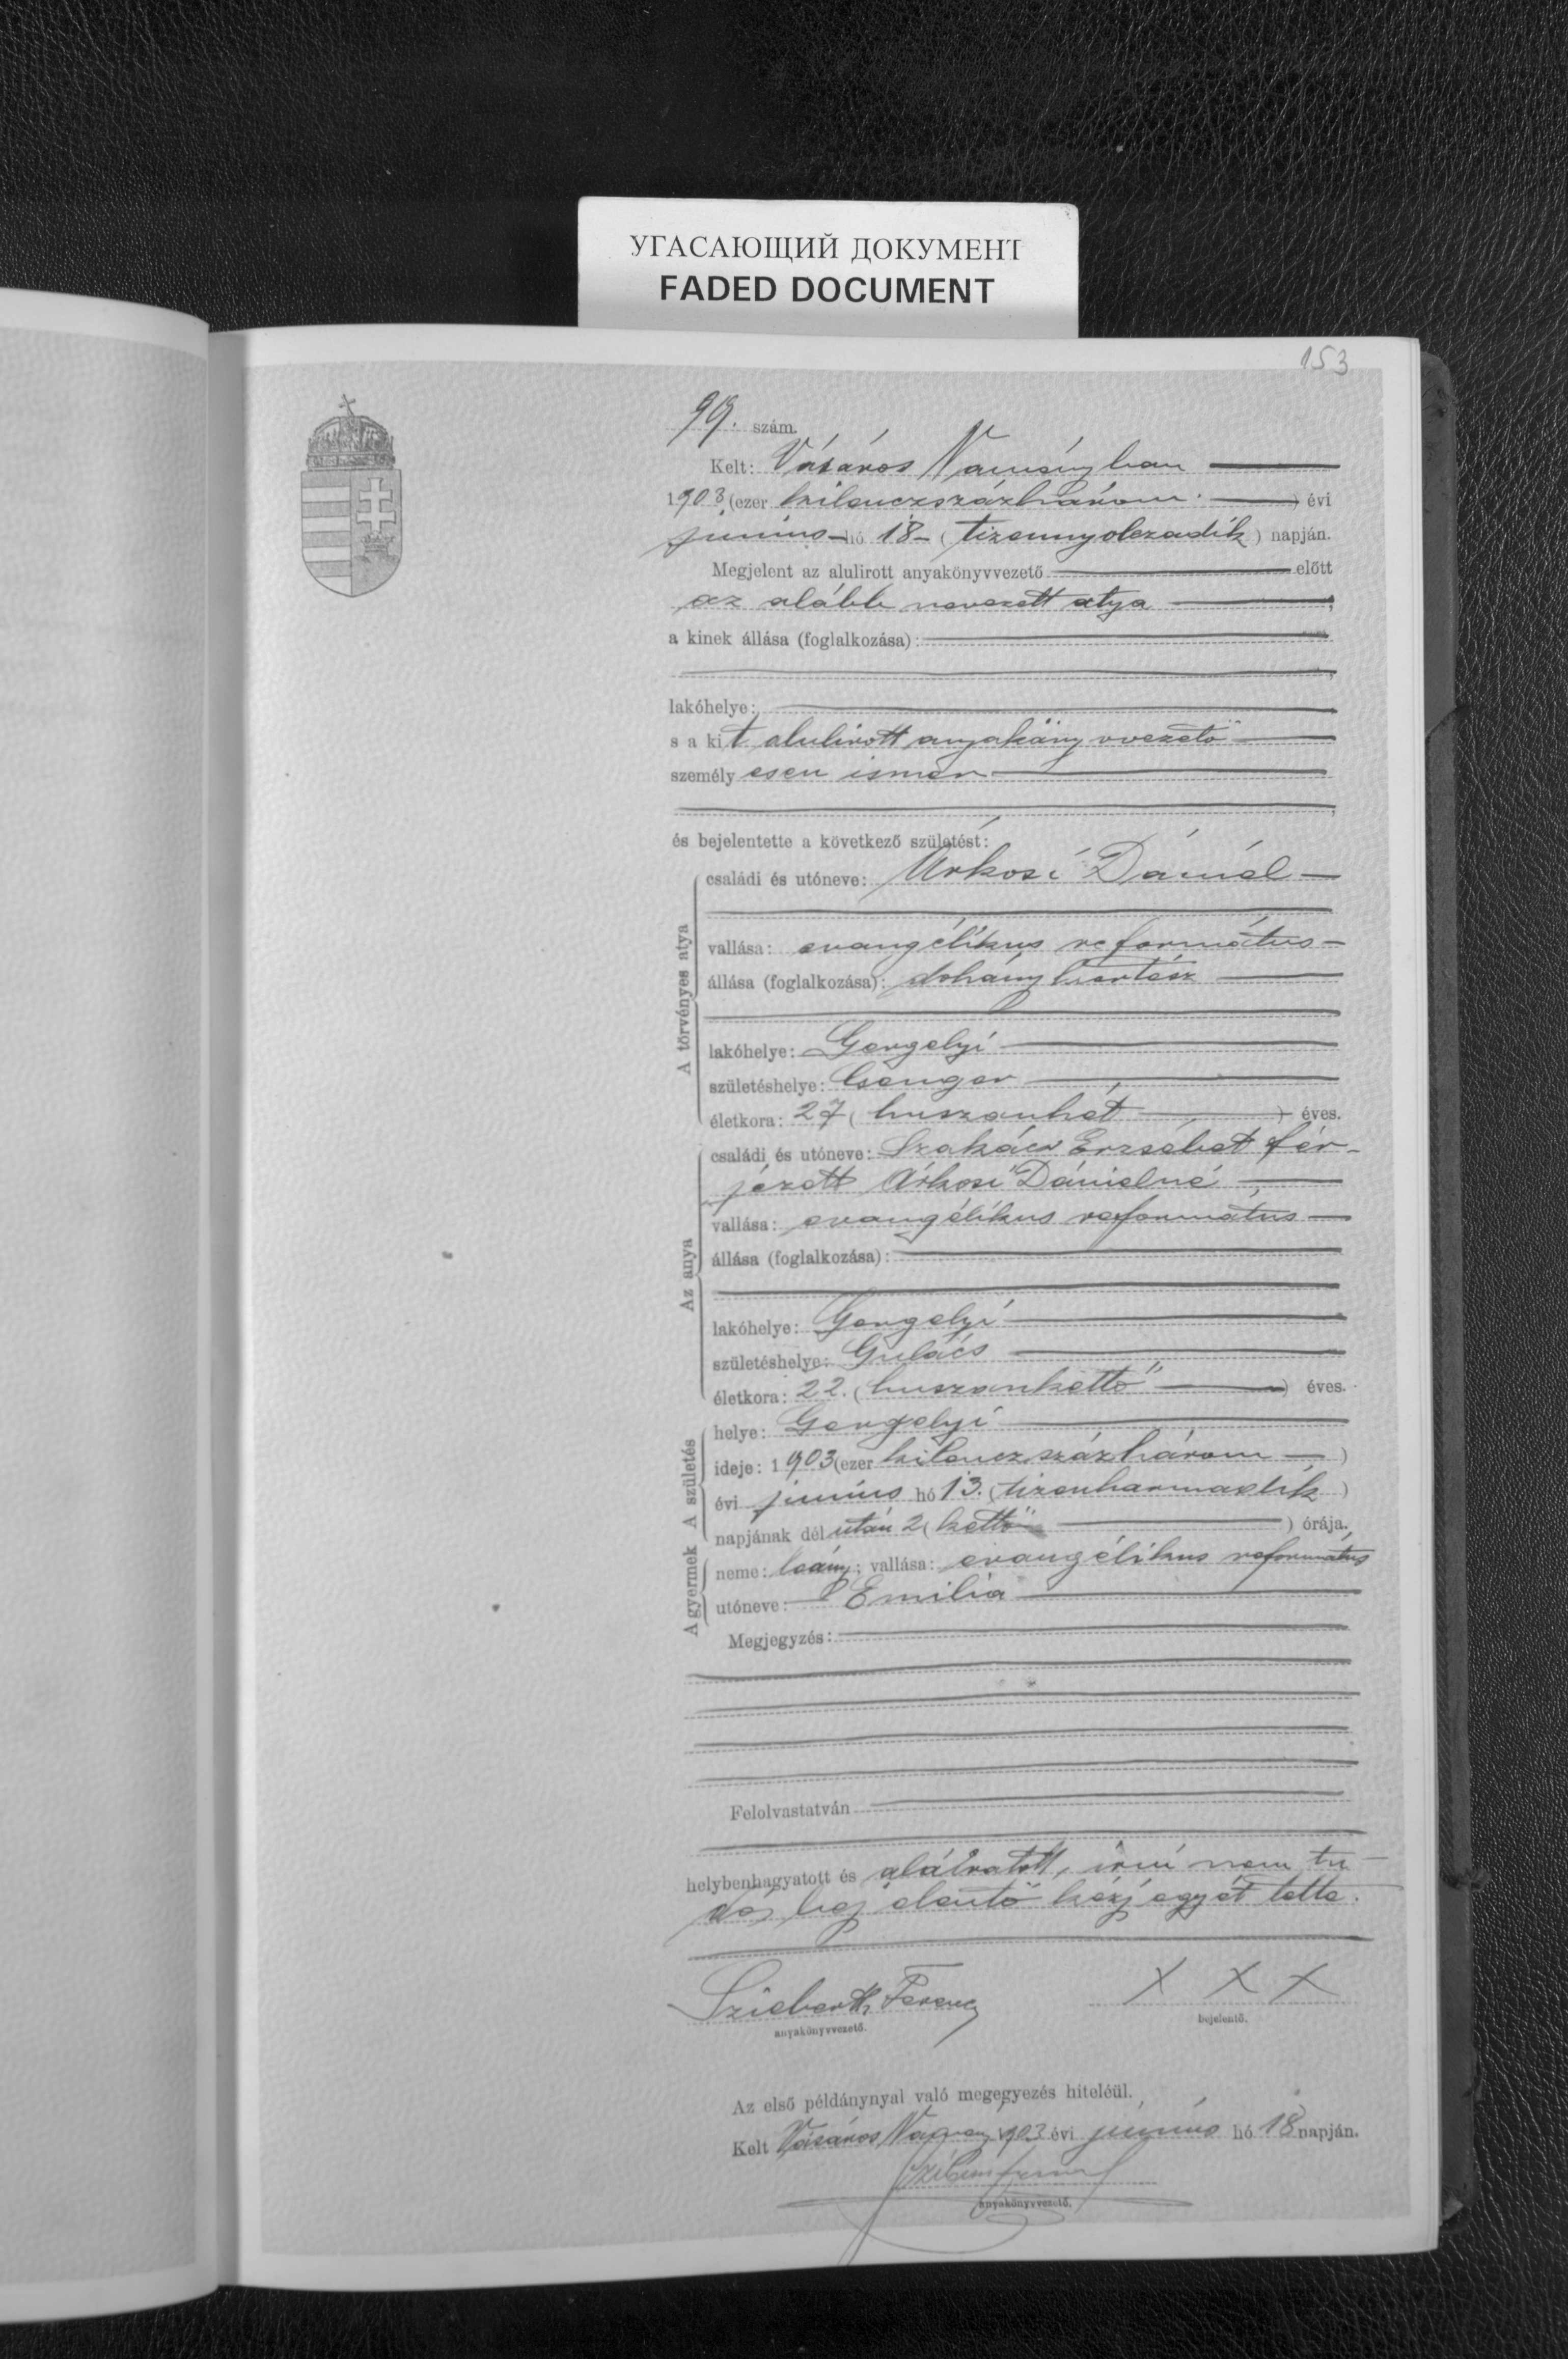 УГАСАЮЩИЙ ДОКУМЕНТ
FADED DOCUMENT
153
99. szám.
Kelt: Vásáros Naményban
1903 (ezer kilenczszázhárom) évi
június hó 18 (tizennyolczadik) napján.
Megjelent az alulirott anyakönyvvezető előtt
az alább nevezett atya ,
a kinek állása (foglalkozása):
lakóhelye:
s a kit alulirott anyakönyvvezető
személyesen ismer
és bejelentette a következő születést:
A törvényes atya
családi és utóneve: Árkosi Dániel
vallása: evangélikus református
állása (foglalkozása): dohánykertész
lakóhelye: Gergelyi
születéshelye: Csenger
életkora: 27 (huszonhét) éves.
Az anya
családi és utóneve: Szakács Erzsébet fér-
jezett Árkosi Dánielné
vallása: evangélikus református
állása (foglalkozása):
lakóhelye: Gergelyi
születéshelye: Gulács
életkora: 22. (huszonkettő) éves.
A születés
helye: Gergelyi
ideje: 1903 (ezer kilenczszázhárom)
évi június hó 13. (tizenharmadik)
napjának délután 2 (kettő) órája.
A gyermek
neme: leány; vallása: evangélikus református
utóneve: Emilia
Megjegyzés:
Felolvastatván
helybenhagyatott és aláíratott, írni nem tu-
dó bejelentő kézjegyét tette.
Sziebert Ferencz X X X
anyakönyvvezető. bejelentő.
Az első példánynyal való megegyezés hiteléül.
Kelt Vásáros Namény, 1903 évi június hó 18 napján.
anyakönyvvezető.